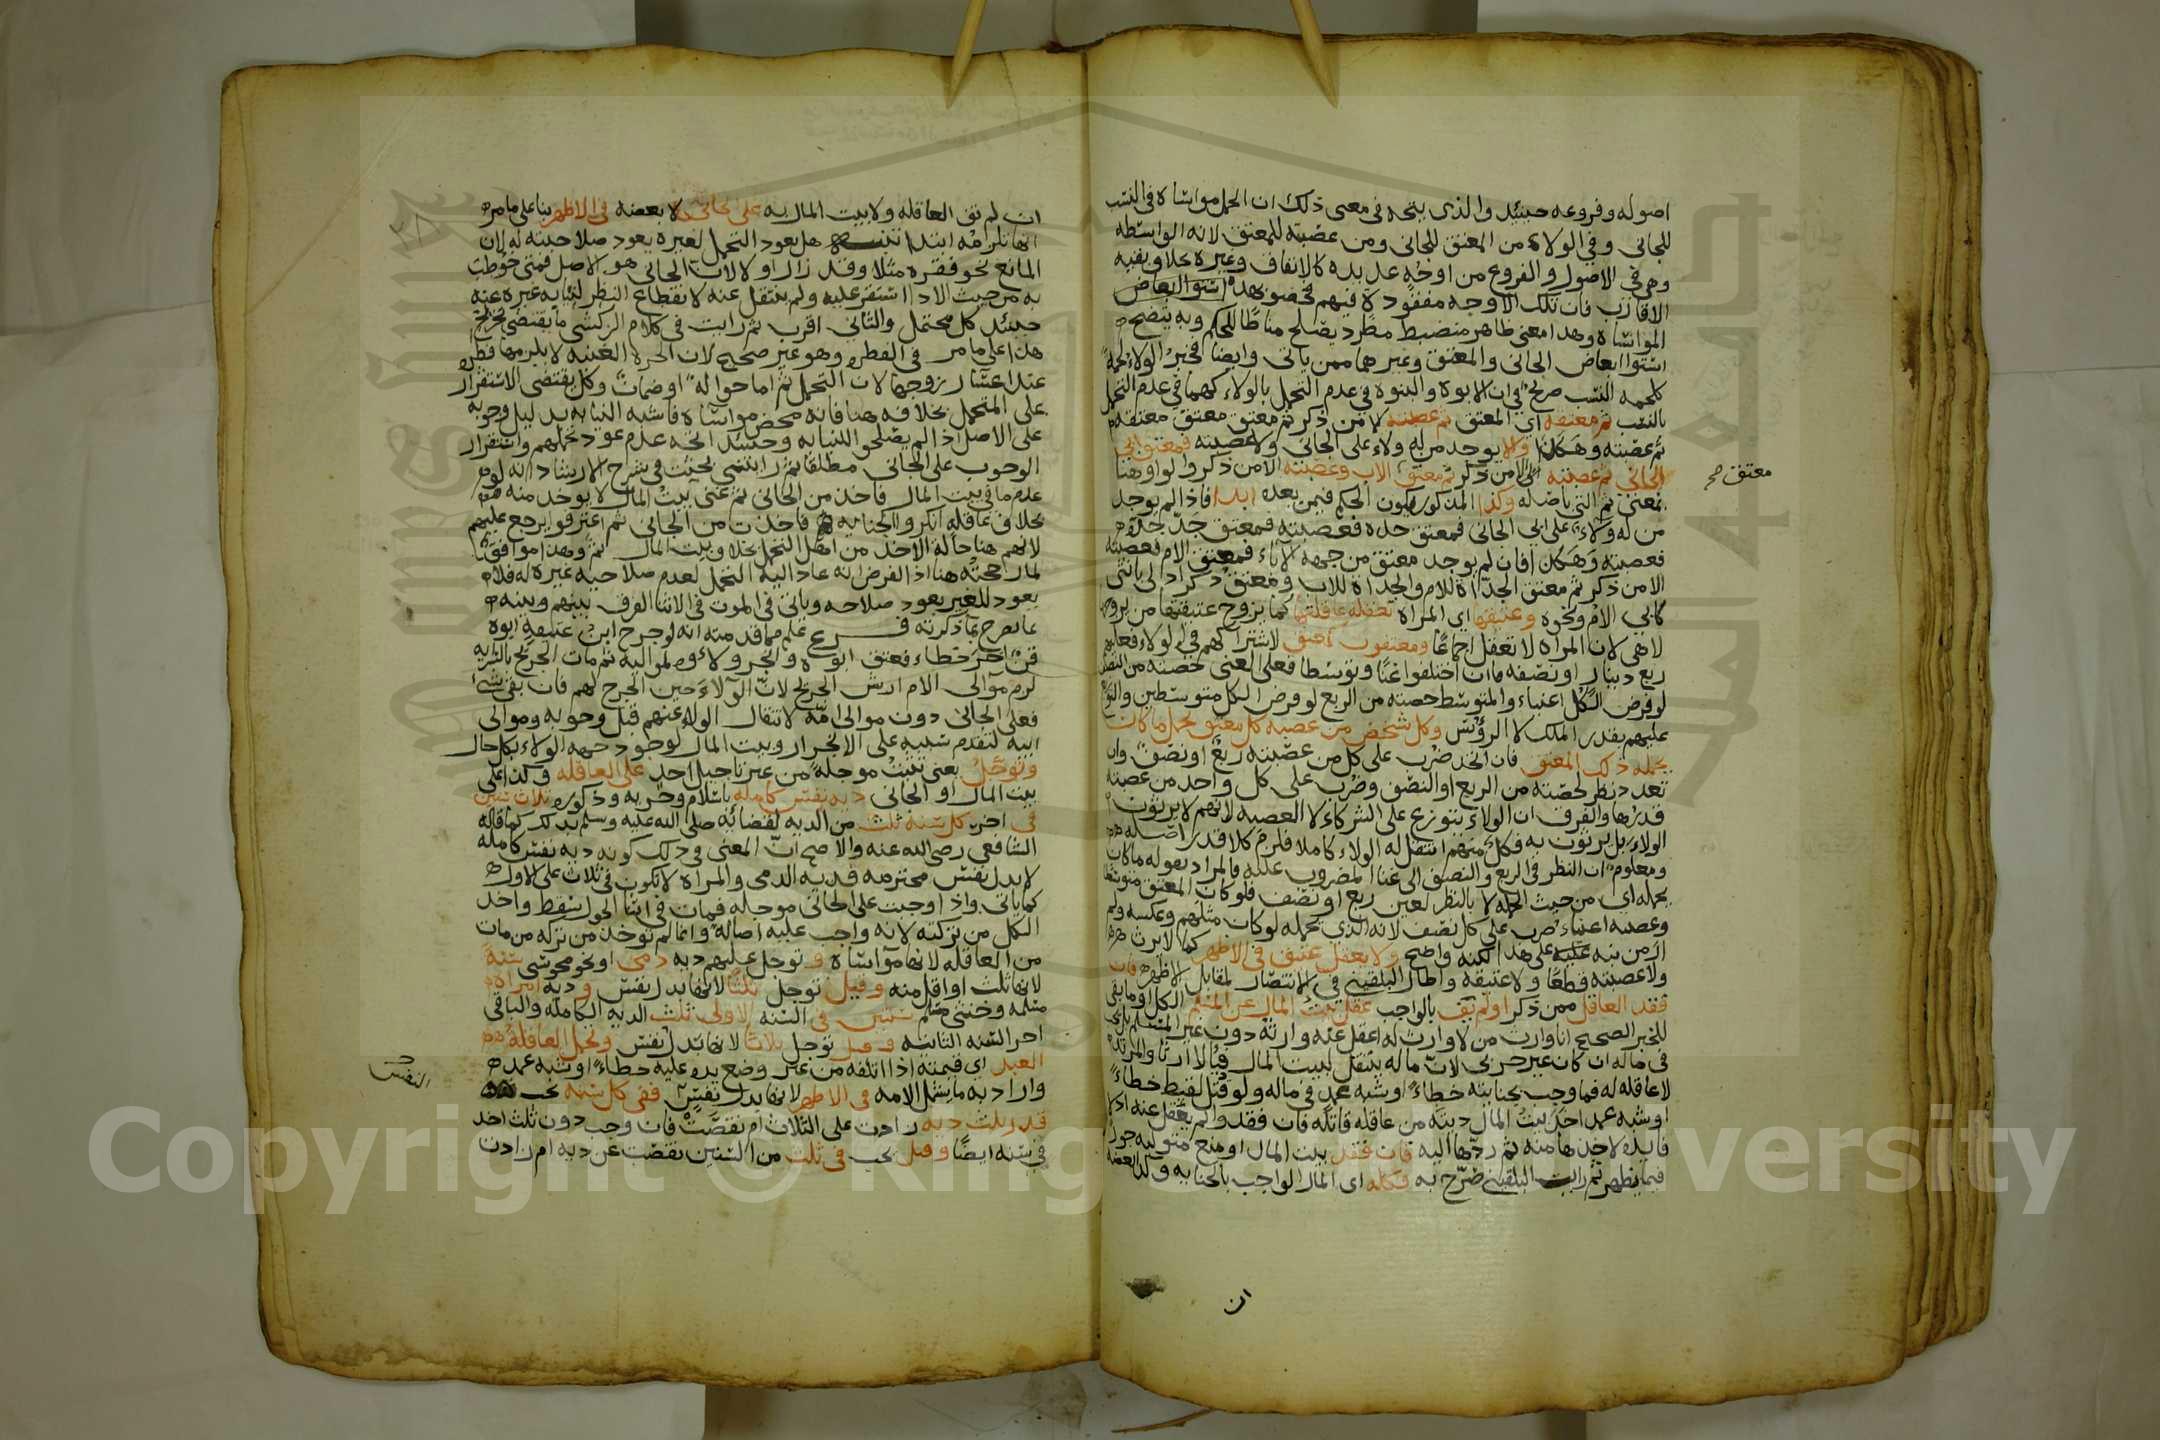 اصوله وفروعه حينئذ والذى يتجه فى معنى ذلك ان الحمل مواساة فى النسب
للجانى وفى الولاء من المعتق للجانى ومن عصبته للمعتق لانه الواسطه
وهى فى الاصول والفروع من اوجه عديده كالانفاق وغيره بخلاف بقيه
الاقارب فان تلك الاوجه مفقوده فيهم فخصو بهذه
المواساه وهذا معنى ظاهر منضبط مطرد يصلح مناطا للحكم وبه يتضح
استوا ابعاض الجانى والمعتق وغيرهما ممن ياتى وايضا فخبر الولاء لحمة
كلحمه النسب صريح فى ان الابوه والبنوه فى عدم التحمل بالولاء كهما فى عدم التحمل
بالنسب ثم معتقه اى المعتق ثم عصبته الا من ذكر ثم معتق معتق معتقه
ثم عصبته وهكذا والا يوجد من له ولاء على الجانى ولا عصبته فمعتق ابى
الجانى ثم عصبته الا من ذكر ثم معتق الاب وعصبته الا من ذكر والواو هنا
معتق صح
بمعنى ثم التى باصله وكذا المذكور يكون الحكم فيمن بعده ابدا فاذا لم يوجد
من له ولاء على ابى الجانى فمعتق جده فعصبته فمعتق جد لجده
فعصبته وهكذا فان لم يوجد معتق من جهه الاباء فمعتق الام فعصبته
الا من ذكر ثم معتق الجداة للام والجداة للاب ومعتق ذكر ادلى بانثى
كابى الام ونحوه وعتيقها اى المراه تعقله عاقلتها كما يزوج عتيقتها من يزوجها
لا هى لان المراه لا تعقل اجماعا ومعتقون كمعتق لاشتراكهم فى الولاء فعليهم
ربع دينار او نصفه فان اختلفوا غنا وتوسطا فعلى الغنى حصته من النصف
لو فرض الكل اغنياء والمتوسط حصته من الربع لو فرض الكل متوسطين والتوزيع
عليهم بقدر الملك لا الرؤس وكل شخص من عصبه كل معتق يحمل ما كان
يحمله ذلك المعتق فان اتحد ضرب على كل من عصبته ربع او نصف وان
تعدد نظر لحصته من الربع او النصف وضرب على كل واحد من عصبته
قدرها والفرق ان الولاء يتوزع على الشركاء لا العصبه لانهم لا يرثون
الولاء بل يرثون به فكل منهم انتقل له الولاء كاملا فلزم كلا قدر اصله
ومعلوم ان النظر فى الربع والنصف الى غنا المضروب عليه فالمراد بقوله ما كان
يحمله اى من حيث الجمله لا بالنظر لعين ربع او نصف فلو كان المعتق متوسطا
وعصبه اغنياء ضرب على كل نصف لانه الذى يحمله لو كان مثلهم وعكسه ولم
ار من نبه على هذا لكنه واضح ولا يعقل عتيق فى الاظهر كما لا يرث
ولا عصبته قطعا ولا عتيقه واطال البلقينى فى الانتصار لمقابل الاظهر فان
فقد العاقل ممن ذكر او لم يف بالواجب عقل بيت المال عن المسلم الكل او ما بقى
للخبر الصحيح انا وارث من لا وارث له اعقل عنه وارثه دون غير المسلم بل
فى ماله ان كان غير حربى لان ماله ينتقل لبيت المال فيا لا ارثا والمرتد
لا عاقله له فما وجب بجنايته خطاء او شبه عمد فى ماله ولو قتل لقيط خطاء
او شبه عمد اخذ بيت المال ديته من عاقله قاتله فان فقدوا لم يعقل عنه اذ لا
فايده لاخذها منه ثم ردها اليه فان فقد بيت المال او منع متوليه جورا
فيما يظهر ثم رايت البلقينى صرح به فكله اى المال الواجب بالجنايه وكذا بعضه
ان
ان لم تف العاقله ولا بيت المال به على الجانى لا بعضه فى الاظهر بنا على ما مر
انها تلزمه ابتدا تنبيه هل يعود التحمل لغيره بعود صلاحيته له لان
المانع نحو فقره مثلا وقد زال او لا لان الجانى هو الاصل فمتى خوطب
به من حيث الادا استقر عليه ولم ينتقل عنه لانقطاع النظر لنيابه غيره عنه
حينئذ كل محتمل والثانى اقرب ثم رايت فى كلام الزركشى ما يقتضى تخريج
هذا على ما مر فى الفطره وهو غير صحيح لان الحرة الغنيه لا يلزمها فطره
عند اعسار زوجها لان التحمل ثم اما حواله او ضمان وكل يقتضى الاستقرار
على المتحمل بخلافه هنا فانه محض مواساه فاشبه النيابه بدليل وجوبه
على الاصل اذا لم يصلحوا للنيابه وحينئذ اتجه عدم عود تحملهم واستقرار
الوجوب على الجانى مطلقا ثم رايتنى بحثت فى شرح الارشاد انه لو
عدم ما فى بيت المال فاخذ من الجانى ثم غنى بيت المال لا يوخذ منه
بخلاف عاقله انكروا الجنايه فاخذت من الجانى ثم اعترفوا يرجع عليهم
لانهم هنا حاله الاخذ من اهل التحمل بخلاف بيت المال ثم وهذا موافق
لما رجحته هنا اذ الفرض انه عاد اليه التحمل لعدم صلاحيه غيره له فلا
يعود للغير بعود صلاحه وياتى فى الموت فى الاثنا الفرق بينهم وبينه
بما يصرح بما ذكرته فرع علم مما قدمته انه لو جرح ابن عتيقه ابوه
قن اخر خطاء فعتق ابوه وانجر ولاؤه لمواليه ثم مات الجريح بالسرايه
لزم موالى الام ارش الجرح لان الولاء حين الجرح لهم فان بقى شى
فعلى الجانى دون موالى امه لانتقال الولاء عنهم قبل وجوبه وموالى
ابيه لتقدم سببه على الانجرار وبيت المال لوجود جهه الولاء بكل حال
وتؤجل يعنى تثبت موجله من غير تاجيل احد على العاقله وكذا على
بيت المال او الجانى ديه نفس كامله باسلام وحريه وذكوره ثلاث سنين
فى اخر كل سنه ثلث من الديه لقضائه صلى الله عليه وسلم بذلك كما قاله
الشافعى رضى الله عنه والاصح ان المعنى فى ذلك كونه ديه نفس كامله
لا بدل نفس محترمه فديه الذمى والمراه لا تكون فى ثلاث على الاول
كما ياتى واذا وجبت على الجانى موجله فمات فى اثنا الحول سقط واخذ
الكل من تركته لانه واجب عليه اصالة وانما لم توخذ من تركه من مات
من العاقله لانها مواساه و توجل عليهم ديه ذمى او نحو مجوسى سنة
لانها ثلث او اقل منه وقيل توجل ثلثا لانها بدل نفس وديه امراه
مسلمه وخنثى مسلم سنتين فى السنه الاولى ثلث الديه الكامله والباقى
اخر السنه الثانيه وقيل توجل ثلاثا لانها بدل نفس وتحمل العاقله
العبد اى قيمته اذا اتلفه من غير وضع يده عليه خطاء او شبه عمد
النفس
واراد به ما يشمل الامه فى الاظهر لانها بدل نفس ففى كل سنه يجب
قدر ثلث ديه زادت على الثلاث ام نقصت فان وجب دون ثلث اخذ
فى سنه ايضا وقيل يجب فى ثلث من السنين نقصت عن ديه ام زادت
Copyright © King Saud University